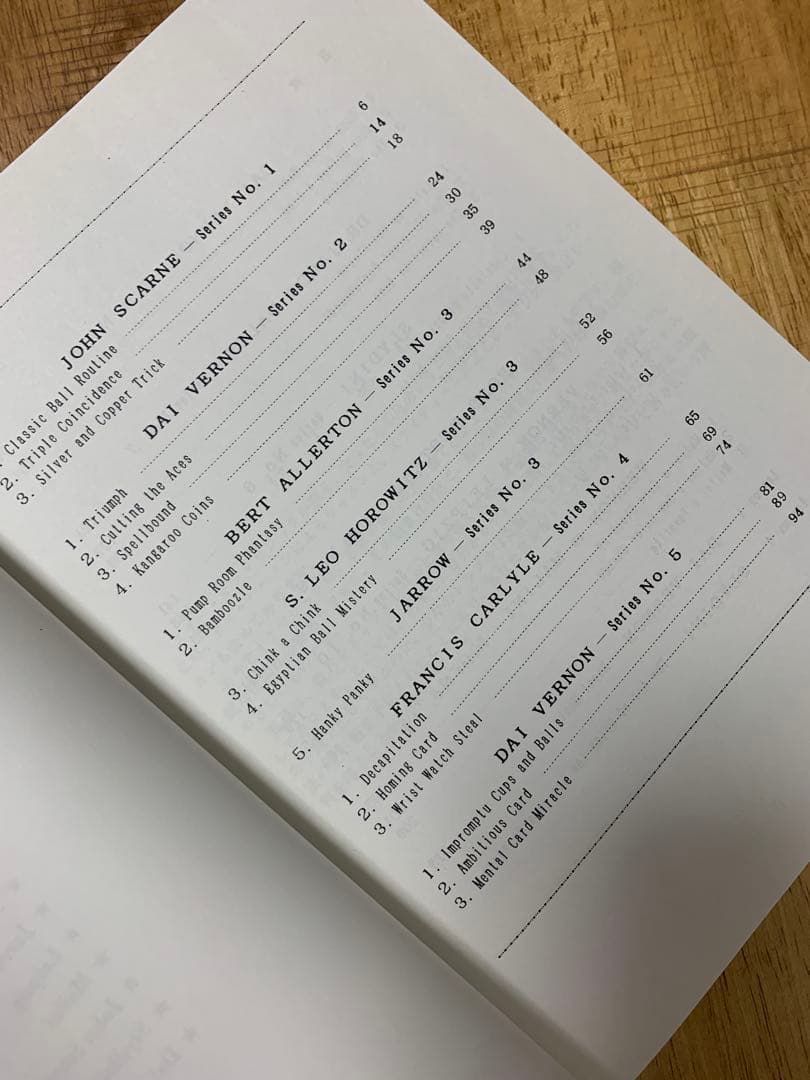 JOHN SCARNE — Series No. 1
1. Classic Ball Routine 6
2. Triple Coincidence 14
3. Silver and Copper Trick 18
DAI VERNON — Series No. 2
1. Triumph 24
2. Cutting the Aces 30
3. Spellbound 35
4. Kangaroo Coins 39
BERT ALLERTON — Series No. 3
1. Pump Room Phantasy 44
2. Bamboozle 48
S. LEO HOROWITZ — Series No. 3
3. Chink a Chink 52
4. Egyptian Ball Mistery 56
JARROW — Series No. 3
5. Hanky Panky 61
FRANCIS CARLYLE — Series No. 4
1. Decapitation 65
2. Homing Card 69
3. Wrist Watch Steal 74
DAI VERNON — Series No. 5
1. Impromptu Cups and Balls 81
2. Ambitious Card 89
3. Mental Card Miracle 94